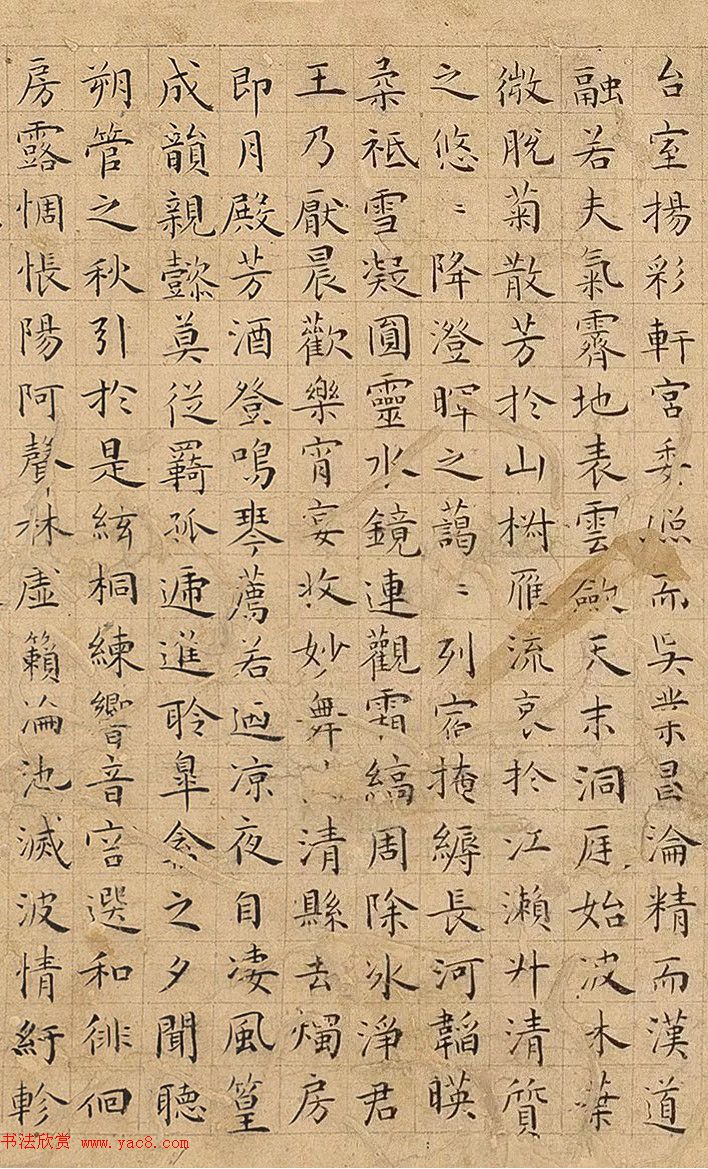 台室揚彩軒宮委照而吳業昌淪精而漢道
融若夫氣霽地表雲斂天末洞庭始波木葉
微脫菊散芳於山椒雁流哀於江瀨升清質
之悠〻降澄暉之藹〻列宿掩縟長河韜暎
柔祇雪凝圓靈水鏡連觀霜縞周除冰淨君
王乃厭晨歡樂宵宴收妙舞清縣去燭房
即月殿芳酒登鳴琴薦若迺凉夜自凄風篁
成韻親懿莫從羇孤遞進聆皐禽之夕聞聽
朔管之秋引於是絃桐練響音容選和徘徊
房露惆悵陽阿聲林虛籟淪池滅波情紆軫
书法欣赏 www.yac8.com